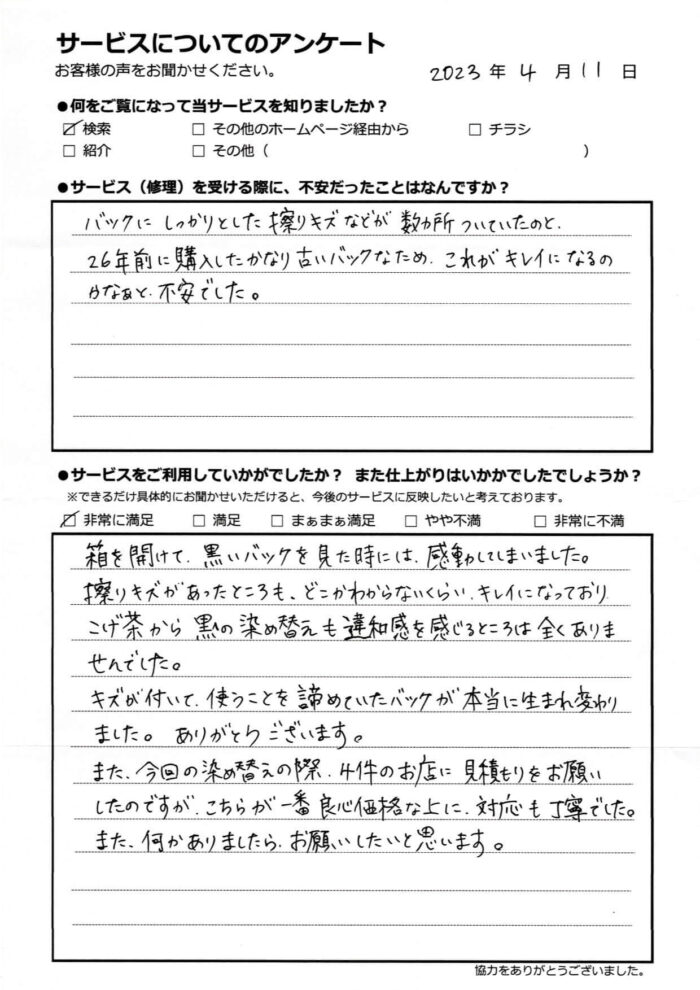 サービスについてのアンケート
お客様の声をお聞かせください。
2023 年 4 月 11 日
●何をご覧になって当サービスを知りましたか？
☑ 検索 □ その他のホームページ経由から □ チラシ
□ 紹介 □ その他（ ）
●サービス（修理）を受ける際に、不安だったことはなんですか？
バックに しっかりとした 擦りキズなどが 数カ所 ついていたのと、
26年前に購入したかなり古いバックなため、これが キレイになるの
かなぁと、不安でした。
●サービスをご利用していかがでしたか？ また仕上がりはいかかでしたでしょうか？
※できるだけ具体的にお聞かせいただけると、今後のサービスに反映したいと考えております。
☑ 非常に満足 □ 満足 □ まぁまぁ満足 □ やや不満 □ 非常に不満
箱を開けて、黒いバックを見た時には、感動してしまいました。
擦りキズがあったところも、どこかわからないくらい、キレイになっており
こげ茶から 黒の染め替えも 違和感を感じるところは全くありま
せんでした。
キズが付いて、使うことを諦めていたバックが本当に生まれ変わり
ました。ありがとうございます。
また、今回の染め替えの際、4件のお店に見積もりをお願い
したのですが、こちらが一番良心価格な上に、対応も丁寧でした。
また、何かありましたら、お願いしたいと思います。
協力をありがとうございました。